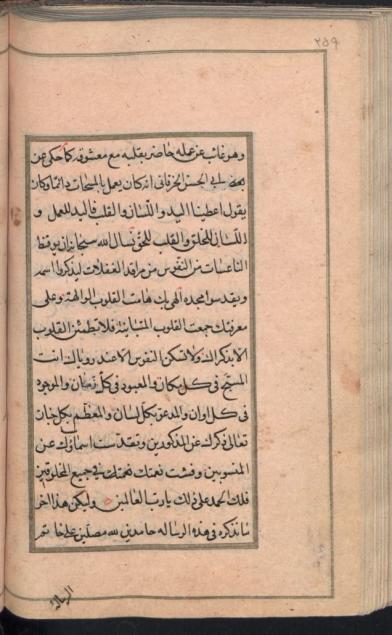 ٢٥٩
وهو غائب عن عمله حاضر بقلبه مع معشوقه كما حكى عن
لابى الحسن الخرقانى انه كان يعمل بالمسحات دائما وكان
يقول اعطينا اليد واللسان والقلب فاليد للعمل و
اللسان للخلق والقلب للحق نسأل الله سبحانه ان يوقظ
الناعسات من النفوس من مراقد الغفلات ليذكروا اسمه
ويقدسوا مجده الهى بك هامت القلوب الوالهة وعلى
معرفتك جمعت القلوب المتباينة فلا تطمئن القلوب
الا بذكراك ولا تسكن النفوس الا عند روياك انت
المسبح فى كل مكان والمعبود فى كل زمان والموجود
فى كل اوان والمدعو بكل لسان والمعظم بكل جنان
تعالى ذكرك عن المذكورين وتقدست اسمائك عن
المنسوبين وفشت نعمتك فى جميع المخلوقين
فلك الحمد على ذلك يا رب العالمين وليكن هذا اخر
ما نذكره فى هذه الرساله حامدين لله مصلين على خاتم
الرسالة